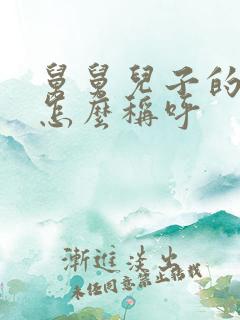 舅舅兒子的
怎麼稱呼
漸進淡出
未經同意禁止轉載